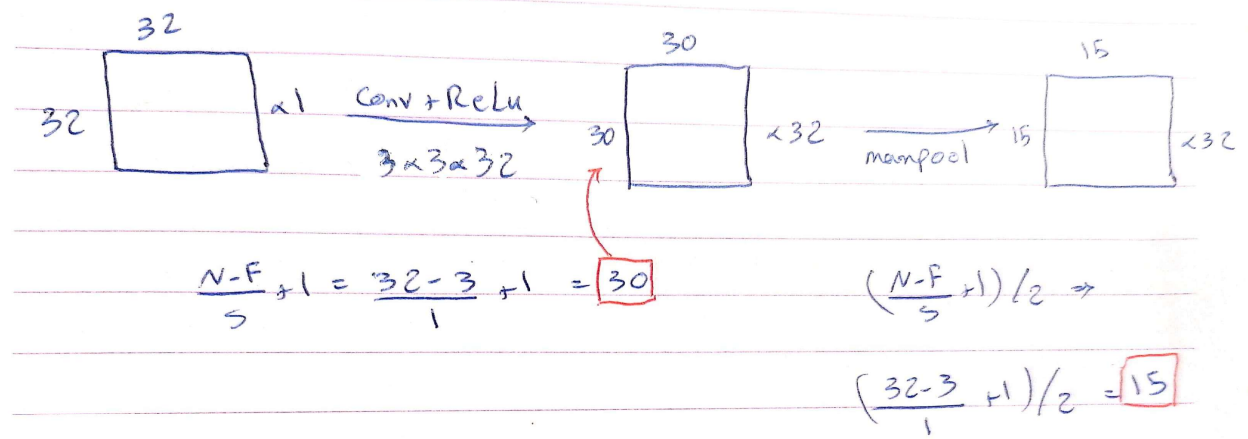 32
30
15
32
x1
Conv + ReLu
3x3x32
30
x32
maxpool
15
x32
N-F/S + 1 = 32-3/1 + 1 = 30
(N-F/S + 1)/2 ⇒
(32-3/1 + 1)/2 = 15